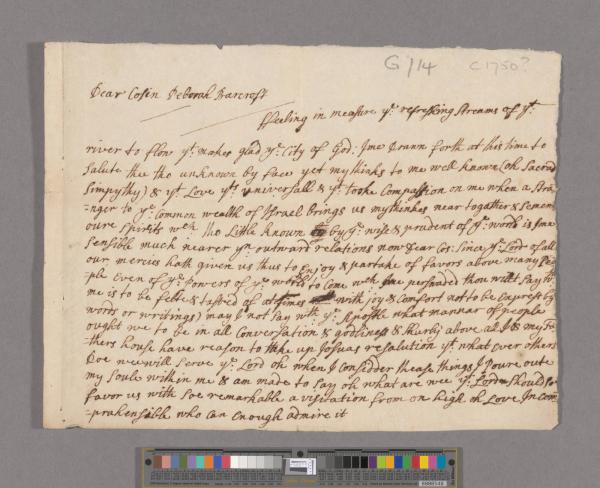 G/14 c1750?
Dear Cosin Deborah Barcroft
ffeeling in measure ye. refreshing streams of yt.
river to flow yt. makes glad ye. City of God: Ime Drawn forth at this time to
salute thee tho unknown by face yet mythinks to me well known (oh sacred
simpythy) & yt Love yts universall & yt tooke Compassion on me when a stra-
-nger to ye. Common wealth of Israel brings us mythinkes near together & sement
oure spirits wch. tho Little known by ye. wise & prudent of ys. world is Ime
sensible much nearer yn outward relations now Dear Cos: since ye. Lord of all
our mercies hath given us thus to Enjoy & partake of favors above many peo
ple Even of ye. powers of ye world to Come wch Ime perswaded thou wilt say wth
me is to be felt & tasted of attimes with joy & Comfort not to be Exprest by
words or writings) may I not say wth. ye. Apostle what mannar of people
ought we to be in all Conversation & godliness & therby above all I & my fa
thers house have reason to take up Josuas resalution yt. what ever others
Doe we will serve ye. Lord oh when I consedder these things I poure oute
my soule within me & am made to say oh what are wee yt. Lord should so
favor us with soe remarkable a visitation from on high oh Love Incom
-prehensible who can Enough admire it